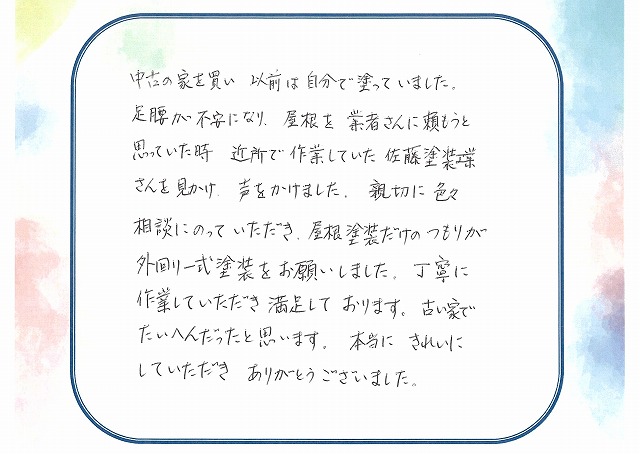 中古の家を買い 以前は自分で塗っていました。
足腰が不安になり、屋根を 業者さんに頼もうと
思っていた時 近所で作業していた佐藤塗装工業
さんを見かけ、声をかけました。親切に色々
相談にのっていただき、屋根塗装だけのつもりが
外回り一式塗装をお願いしました。丁寧に
作業していただき満足しております。古い家で
たいへんだったと思います。本当に きれいに
していただき ありがとうございました。